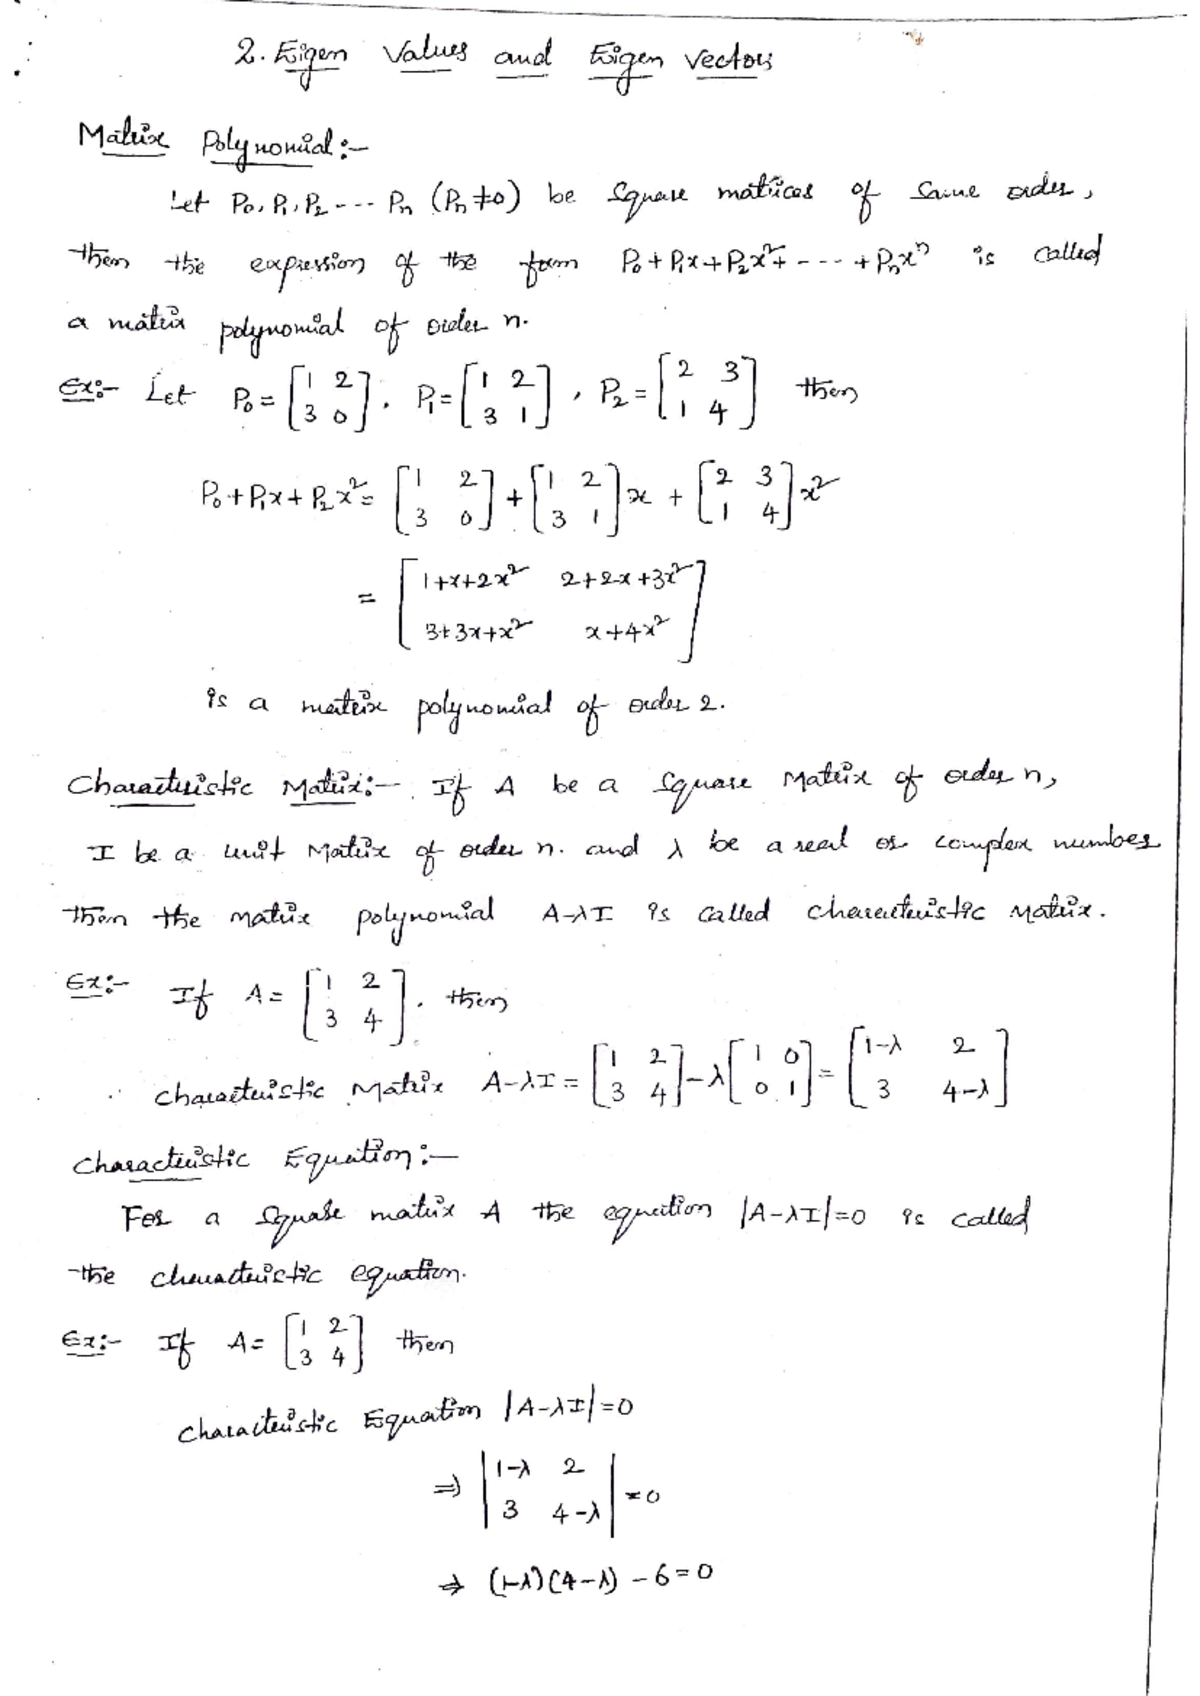 2. Eigen Values and Eigen Vectors
Matrix Polynomial :-
Let P₀, P₁, P₂ --- Pₙ (Pₙ ≠ 0) be Square matrices of Same order,
then the expression of the form P₀ + P₁x + P₂x² + --- + Pₙxⁿ is called
a matrix polynomial of order n.
Ex:- Let P₀ = [1 2; 3 0], P₁ = [1 2; 3 1], P₂ = [2 3; 1 4] then
P₀ + P₁x + P₂x² = [1 2; 3 0] + [1 2; 3 1]x + [2 3; 1 4]x²
= [1+x+2x² 2+2x+3x²; 3+3x+x² x+4x²]
is a matrix polynomial of order 2.
Characteristic Matrix:- If A be a Square Matrix of order n,
I be a unit Matrix of order n. and λ be a real or complex number
then the matrix polynomial A-λI is called characteristic Matrix.
Ex:- If A = [1 2; 3 4], then
characteristic Matrix A-λI = [1 2; 3 4] - λ[1 0; 0 1] = [1-λ 2; 3 4-λ]
Characteristic Equation :-
For a Square matrix A the equation |A-λI|=0 is called
the characteristic equation.
Ex:- If A = [1 2; 3 4] then
characteristic Equation |A-λI|=0
⇒ |1-λ 2; 3 4-λ| = 0
⇒ (1-λ)(4-λ) - 6 = 0